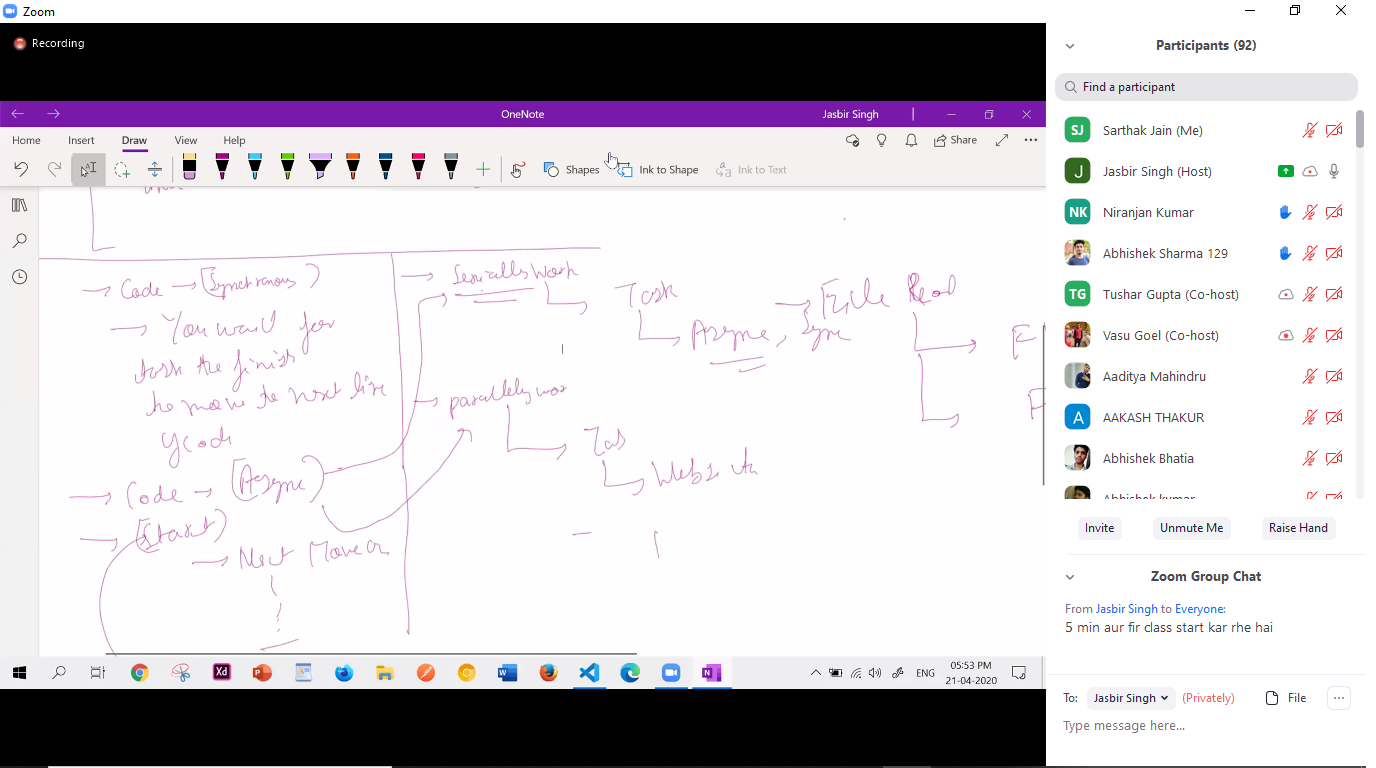 Zoom
Recording
OneNote
Jasbir Singh
Home
Insert
Draw
View
Help
Share
Shapes
Ink to Shape
Ink to Text
Code → (Synchronous)
You wait for
task the finish
to move to next line
Code → (Async)
(Start)
Next Move on
Serially Work
Task
Async, Sync
File Read
F
parallely wor
Tas
Website
F
ENG
05:53 PM
21-04-2020
Participants (92)
Find a participant
SJ Sarthak Jain (Me)
J Jasbir Singh (Host)
NK Niranjan Kumar
Abhishek Sharma 129
TG Tushar Gupta (Co-host)
Vasu Goel (Co-host)
Aaditya Mahindru
A AAKASH THAKUR
Abhishek Bhatia
Abhishek kumar
Invite
Unmute Me
Raise Hand
Zoom Group Chat
From Jasbir Singh to Everyone:
5 min aur fir class start kar rhe hai
To: Jasbir Singh (Privately)
File
Type message here...